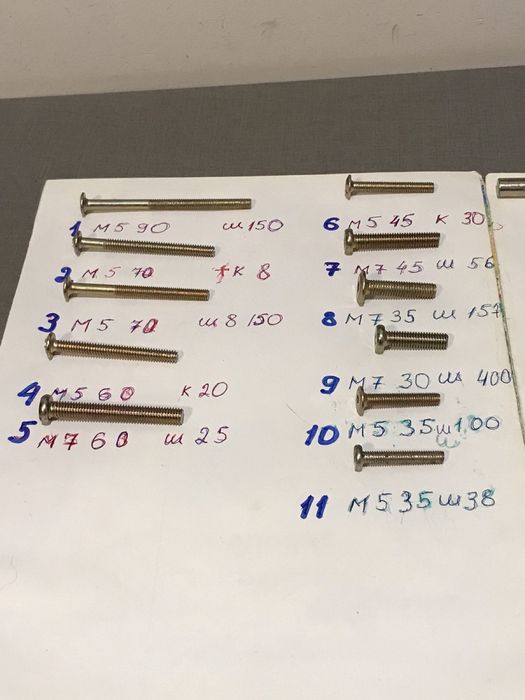 1 М 5 90 ш 150
2 М 5 70 к 8
3 М 5 70 ш 8 150
4 М 5 60 к 20
5 М 7 60 ш 25
6 М 5 45 к 30
7 М 7 45 ш 56
8 М 7 35 ш 157
9 М 7 30 ш 400
10 М 5 35 ш 100
11 М 5 35 ш 38